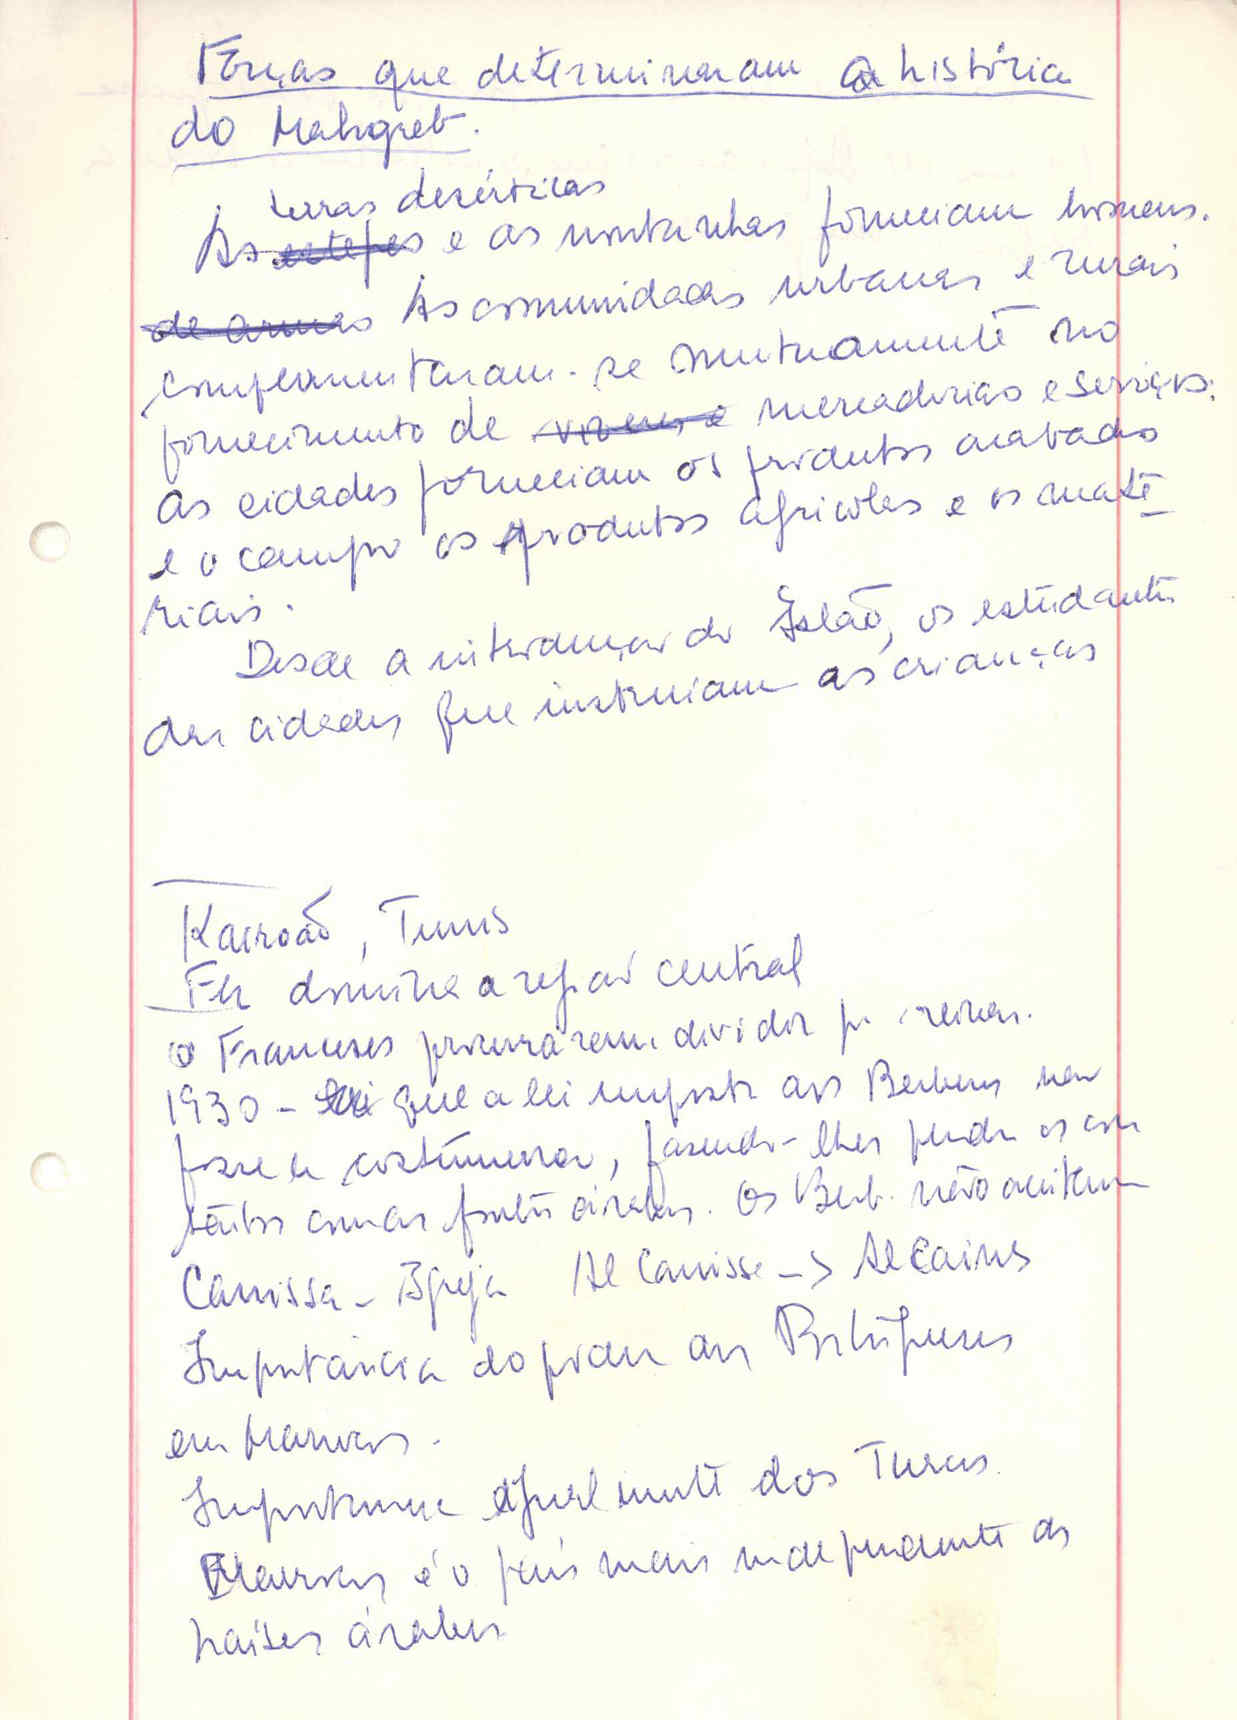 Fôrças que determinaram a história
do Mahgreb.
terras desérticas
As estepes e as montanhas forneciam homens.
de armas As comunidades urbanas e rurais
complementaram-se mutuamente no
fornecimento de víveres e mercadorias e serviços;
as cidades forneciam os produtos acabados
e o campo os produtos agrícolas e os maté
riais.
Desde a introdução do Islão, os estudantes
das cidades que instruiam as crianças
Kairoão, Tunis
Fez domina a região central
o Franceses procuraram dividir p. reinar.
1930 - que a lei imposta aos Berberes não
fosse a costumeira, fazendo-lhes perder os con
tactos com as fontes árabes. Os Berb. não aceitam
Canissa - Igreja Al Canisse -> Alcains
Importância do poder dos Portugueses
em Marrocos.
Importancia igualmente dos Turcos.
Marrocos é o país mais independente dos
países árabes